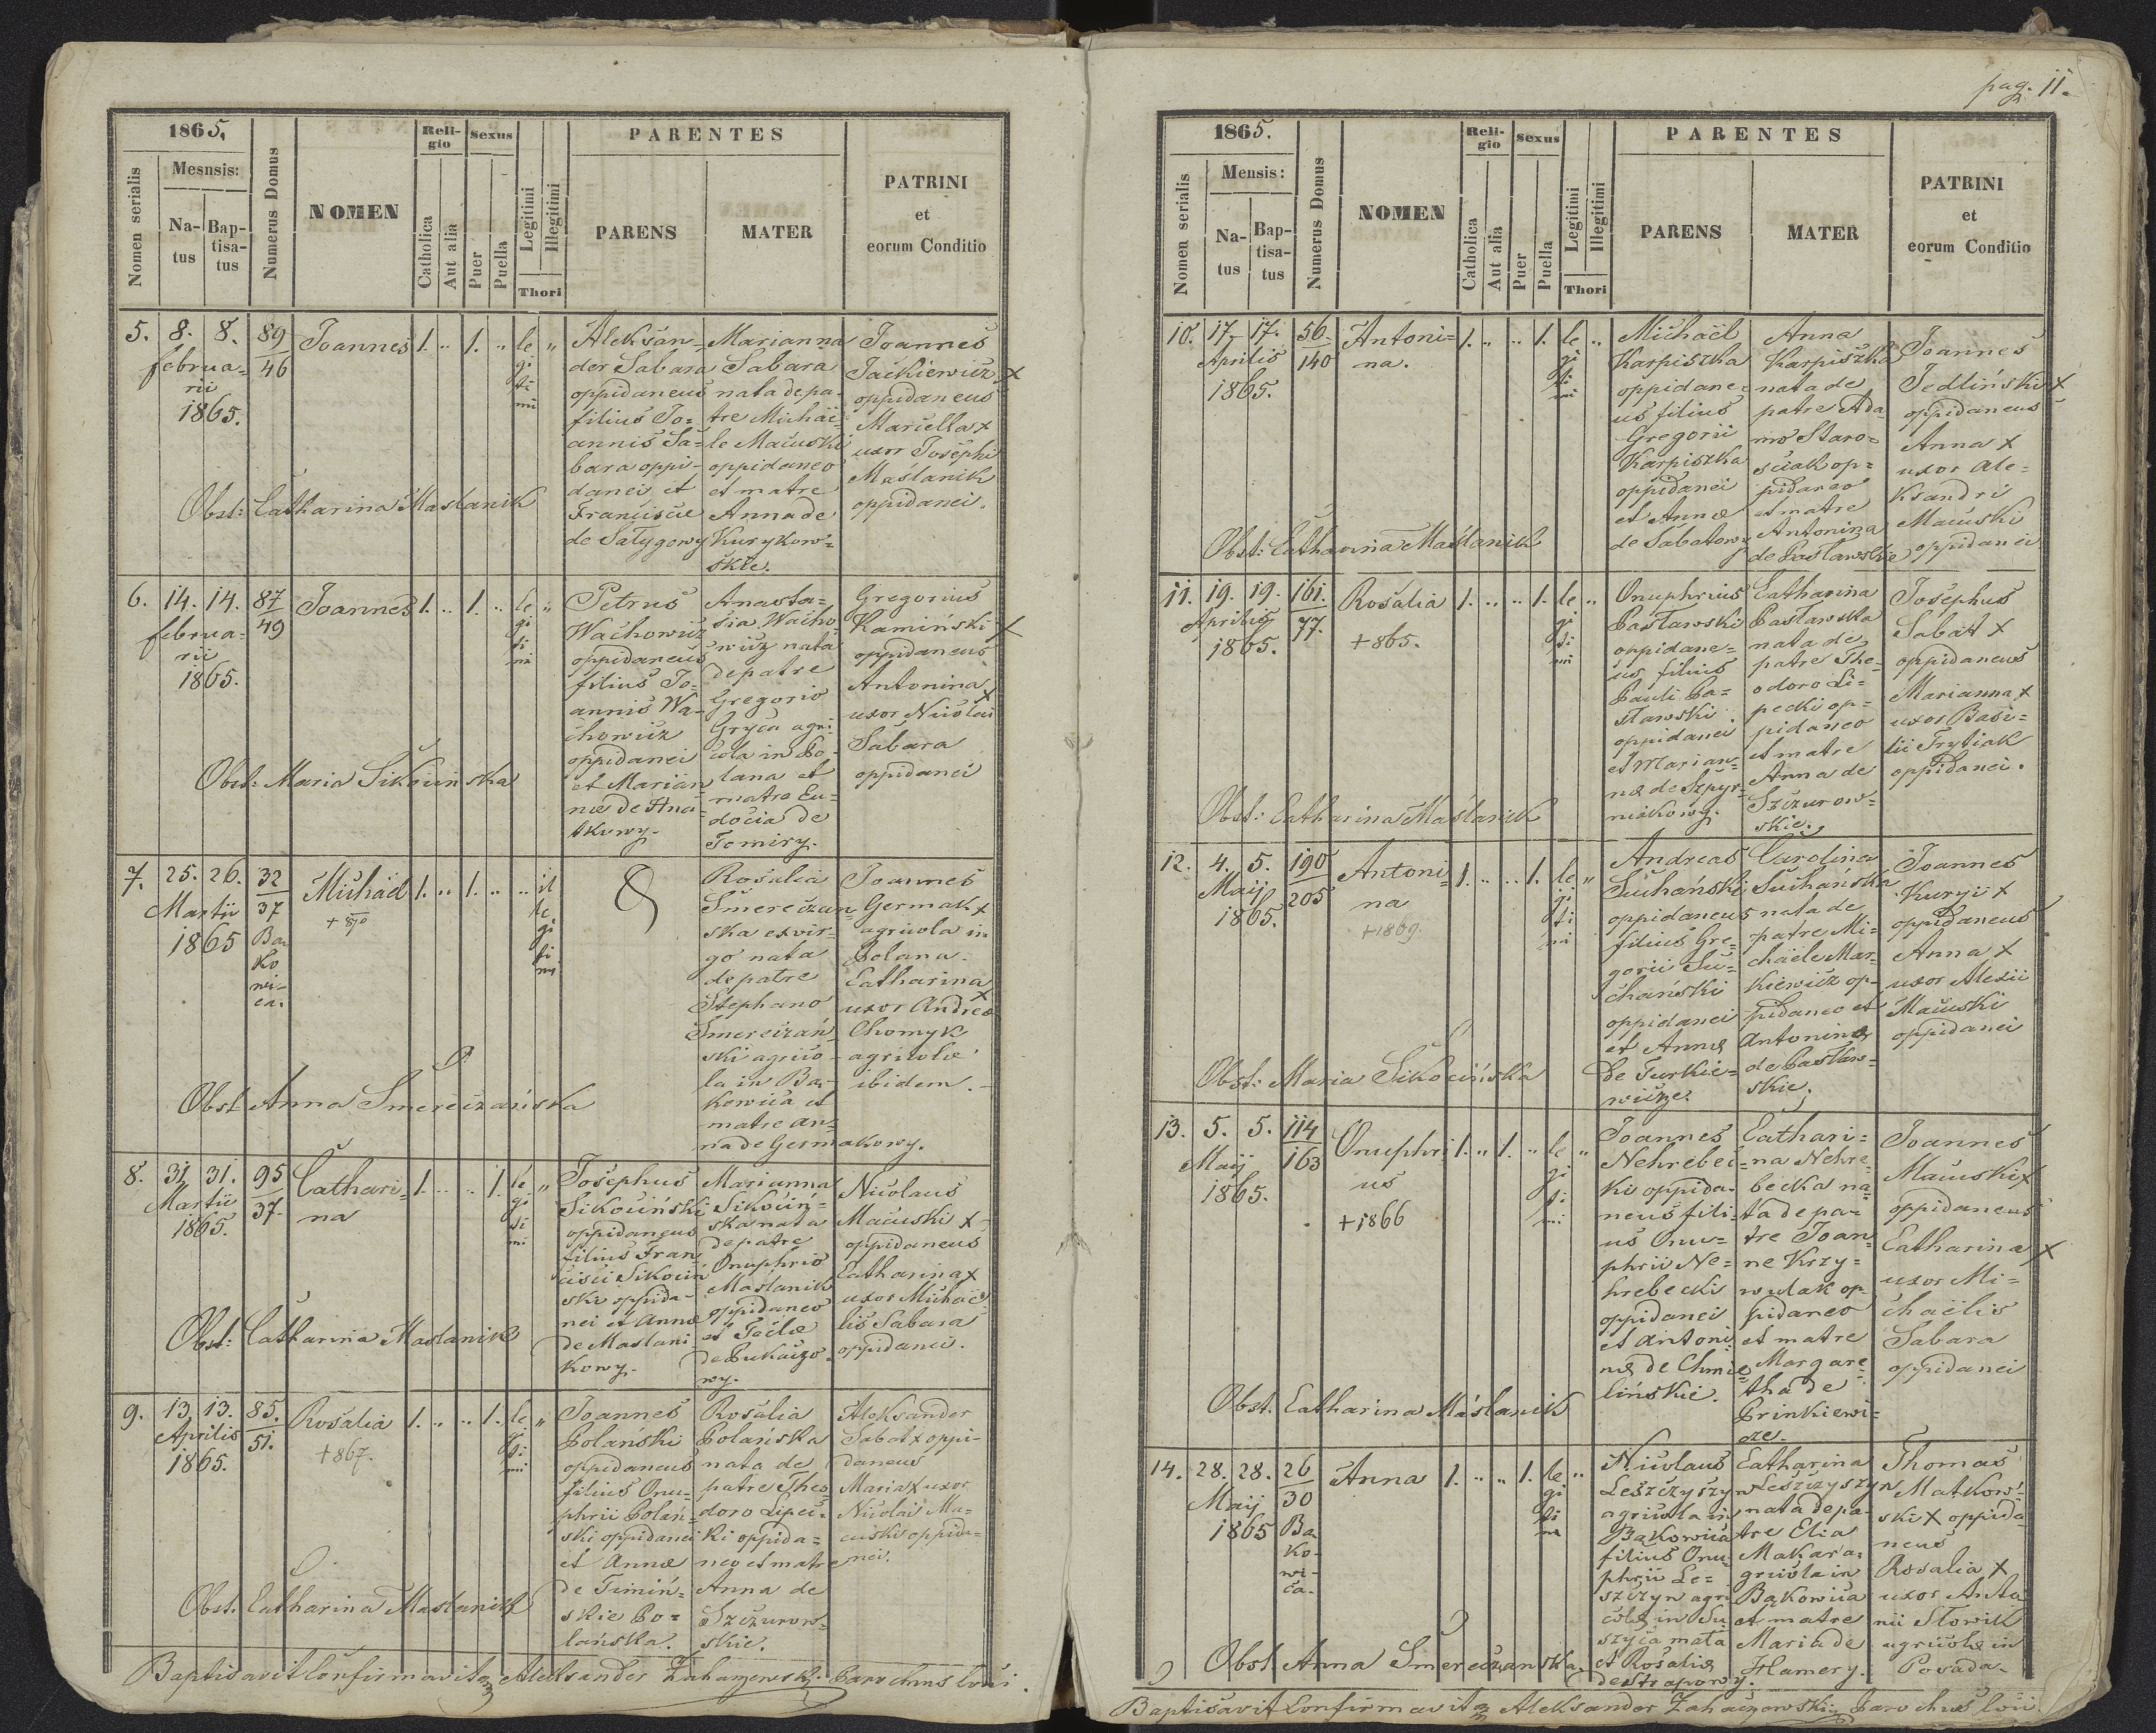 1865.
Nomen serialis
Mesnsis:
Na-
tus
Bap-
tisa-
tus
Numerus Domus
NOMEN
Reli-
gio
Catholica
Aut alia
Sexus
Puer
Puella
Legitimi
Illegitimi
Thori
PARENTES
PARENS
MATER
PATRINI
et
eorum Conditio
5. 8. 8. 89
46
februa-
rii
1865.
Joannes 1. " 1. " le "
gi
ti
mi
Aleksan-
der Sabara
oppidaneus
filius Jo-
annis Sa-
bara oppi-
danei et
Franciscæ
de Sałygowy
Marianna
Sabara
nata de pa-
tre Michaë-
le Macuski
oppidaneo
et matre
Anna de
Kurykow-
skie.
Joannes
Jackiewicz x
oppidaneus
Mariella x
uxor Josephi
Maślanik
oppidanei.
Obst: Catharina Maslanik
6. 14. 14. 87
49
februa-
rii
1865.
Joannes 1. " 1. " le "
gi
ti
mi
Petrus
Wachowicz
oppidaneus
filius Jo-
annis Wa-
chowicz
oppidanei
et Marian-
næ de Hna-
tkowy.
Anasta-
sia Wacho-
wicz nata
de patre
Gregorio
Gryca agri-
cola in Po-
lana et
matre Eu-
docia de
Tomiry.
Gregorius
Kamiński x
oppidaneus
Antonina x
uxor Nicolai
Sabara
oppidanei
Obst: Maria Sikocinska
7. 25. 26. 32
37
Martii
1865
Ba
ko
wi-
ca.
Michäel 1. " 1. " " il
le
gi
ti
mi
+ 870
Rosalia
Smereczan-
ska ex vir-
go nata
de patre
Stephano
Smereczań-
ski agrico-
la in Ba-
kowica et
matre An-
na de Germakowy.
Joannes
Germak x
agricola in
Polana.
Catharina x
uxor Andreæ
Chomyk
agricolæ
ibidem.
Obst Anna Smereczańska
8. 31. 31. 95
37.
Martii
1865.
Cathari-
na
1. " " 1. le "
gi
ti
mi
Josephus
Sikociński
oppidaneus
filius Fran-
cisci Sikociń-
ski oppida-
nei et Annæ
de Maslani-
kowy.
Marianna
Sikociń-
ska nata
de patre
Onuphrio
Maslanik
oppidaneo
et Teclæ
de Łukaczo-
wy.
Nicolaus
Macuski x
oppidaneus
Catharina x
uxor Michaë-
lis Sabara
oppidanei.
Obst: Catharina Maslanik
9. 13. 13. 85.
51.
Aprilis
1865.
Rosalia 1. " " 1. le "
gi
ti
mi
+ 867.
Joannes
Polański
oppidaneus
filius Onu-
phrii Polań-
ski oppidanei
et Annæ
de Timiń-
skie Po-
lańska.
Rosalia
Polańska
nata de
patre Theo-
doro Lipec-
ki oppida-
neo et matre
Anna de
Szczurow-
skie.
Aleksander
Sabat x oppi-
daneus
Maria x uxor
Nicolai Ma-
cuski oppida-
nei.
Obst. Catharina Maslanik
Baptisavit Confirmavitq Aleksander Zahajewski Parochus loci.
pag. 11.
1865.
Nomen serialis
Mensis:
Na-
tus
Bap-
tisa-
tus
Numerus Domus
NOMEN
Reli-
gio
Catholica
Aut alia
Sexus
Puer
Puella
Legitimi
Illegitimi
Thori
PARENTES
PARENS
MATER
PATRINI
et
eorum Conditio
10. 17. 17. 56.
140
Aprilis
1865.
Antoni-
na.
1. " " 1. le "
gi
ti
mi
Michaël
Karpiszka
oppidane-
us filius
Gregorii
Karpiszka
oppidanei
et Annæ
de Sabatowy
Anna
Karpiszka
nata de
patre Ada-
mo Staro-
sciak op-
pidaneo
et matre
Antonina
de Pasławskie
Joannes
Jedliński x
oppidaneus
Anna x
uxor Ale-
ksandri
Macuski
oppidanei
Obst: Catharina Maślanik
11. 19. 19. 161.
77.
Aprilis
1865.
Rosalia 1. " " 1. le "
gi
ti
mi
+ 865.
Onuphrius
Pasławski
oppidane-
us filius
Pauli Pa-
sławski
oppidanei
et Marian-
næ de Szpyr-
niakowy.
Catharina
Pasławska
nata de
patre The-
odoro Li-
pecki op-
pidaneo
et matre
Anna de
Szczurow-
skie.
Josephus
Sabat x
oppidaneus
Marianna x
uxor Basi-
lii Frytiak
oppidanei.
Obst: Catharina Maślanik
12. 4. 5. 190
205
Maij
1865.
Antoni-
na
1. " " 1. le "
gi
ti
mi
+ 1869.
Andreas
Suchański
oppidaneus
filius Gre-
gorii Su-
chański
oppidanei
et Annæ
de Turkie-
wicze.
Carolina
Suchańska
nata de
patre Mi-
chaële Mar-
kiewicz op-
pidaneo et
Antoninæ
de Pasław-
skie.
Joannes
Kuryj x
oppidaneus
Anna x
uxor Alexii
Macuski
oppidanei
Obst: Maria Sikocińska
13. 5. 5. 114
163
Maij
1865.
Onuphri-
us
1. " 1. " le "
gi
ti
mi
+ 1866
Joannes
Nehrebec-
ki oppida-
neus fili-
us Onu-
phrii Ne-
hrebecki
oppidanei
et Antoni-
næ de Chmie-
lińskie.
Cathari-
na Nehre-
becka na-
ta de pa-
tre Joan-
ne Krzy-
wulak op-
pidaneo
et matre
Margare-
tha de
Hrinkiewi-
cze.
Joannes
Macuski x
oppidaneus
Catharina x
uxor Mi-
chaëlis
Sabara
oppidanei
Obst. Catharina Máslanik
14. 28. 28. 26
30
Maij
1865
Ba
ko-
wi-
ca.
Anna 1. " " 1. le "
gi
ti
mi
Nicolaus
Leszczyszyn
agricola in
Bąkowica
filius Onu-
phrii Le-
szczyn agri-
colæ in Su-
szyca mała
et Rosaliæ
de Strapowy.
Catharina
Leszczyszyn
nata de pa-
tre Elia
Makar a-
gricola in
Bąkowica
et matre
Maria de
Hamery.
Thomas
Matkow-
ski x oppida-
neus
Rosalia x
uxor Anto-
nii Słowik
agricolæ in
Posada.
Obst Anna Smereczanska
Baptisavit Confirmavitq Aleksander Zahajewski Parochus loci